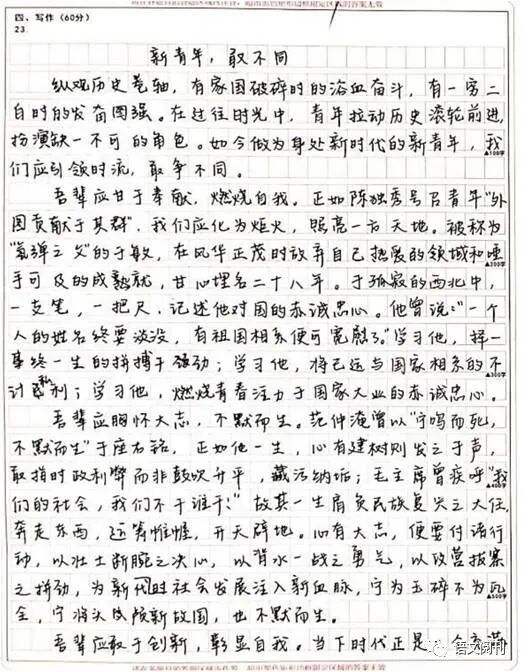 四、写作（60分）
23.
新青年，敢不同
纵观历史卷轴，有家国破碎时的浴血奋斗，有一穷二
白时的发奋图强。在过往时光中，青年拉动历史滚轮前进，
扮演缺一不可的角色。如今做为身处新时代的新青年，我
们应引领时流，敢争不同。
吾辈应甘于奉献，燃烧自我。正如陈独秀号召青年“外
图贡献于其群”，我们应化为炬火，照亮一方天地。被称为
“氢弹之父”的于敏，在风华正茂时放弃自己热爱的领域和唾
手可及的成就，甘心埋名二十八年。于孤寂的西北中，
一支笔，一把尺，记述他对国的赤诚忠心。他曾说：“一个
人的姓名终要淡没，有祖国相系便可宽慰了。”学习他，择一
事终一生的拼搏干劲；学习他，将己运与国家相系的不
计利；学习他，燃烧青春注力于国家大业的赤诚忠心。
吾辈应胸怀大志，不默而生。范仲淹曾以“宁鸣而死，
不默而生”于座右铭，正如他一生，心有建树则发之于声，
敢指时政利弊而非鼓吹升平，藏污纳垢；毛主席曾疾呼“我
们的社会，我们不干谁干！”故其一生肩负民族复兴之大任，
奔走东西，运筹帷幄，开天辟地。心有大志，便要付诸行
动，以壮士断腕之决心，以背水一战之勇气，以攻营拔寨
之拼劲，为新时代社会发展注入新血脉，宁为玉碎不为瓦
全，宁将头成殒新故国，也不默而生。
吾辈应敢于创新，彰显自我。当下时代正是一个充满
▲100字
▲200字
▲300字
▲500字
语文月刊